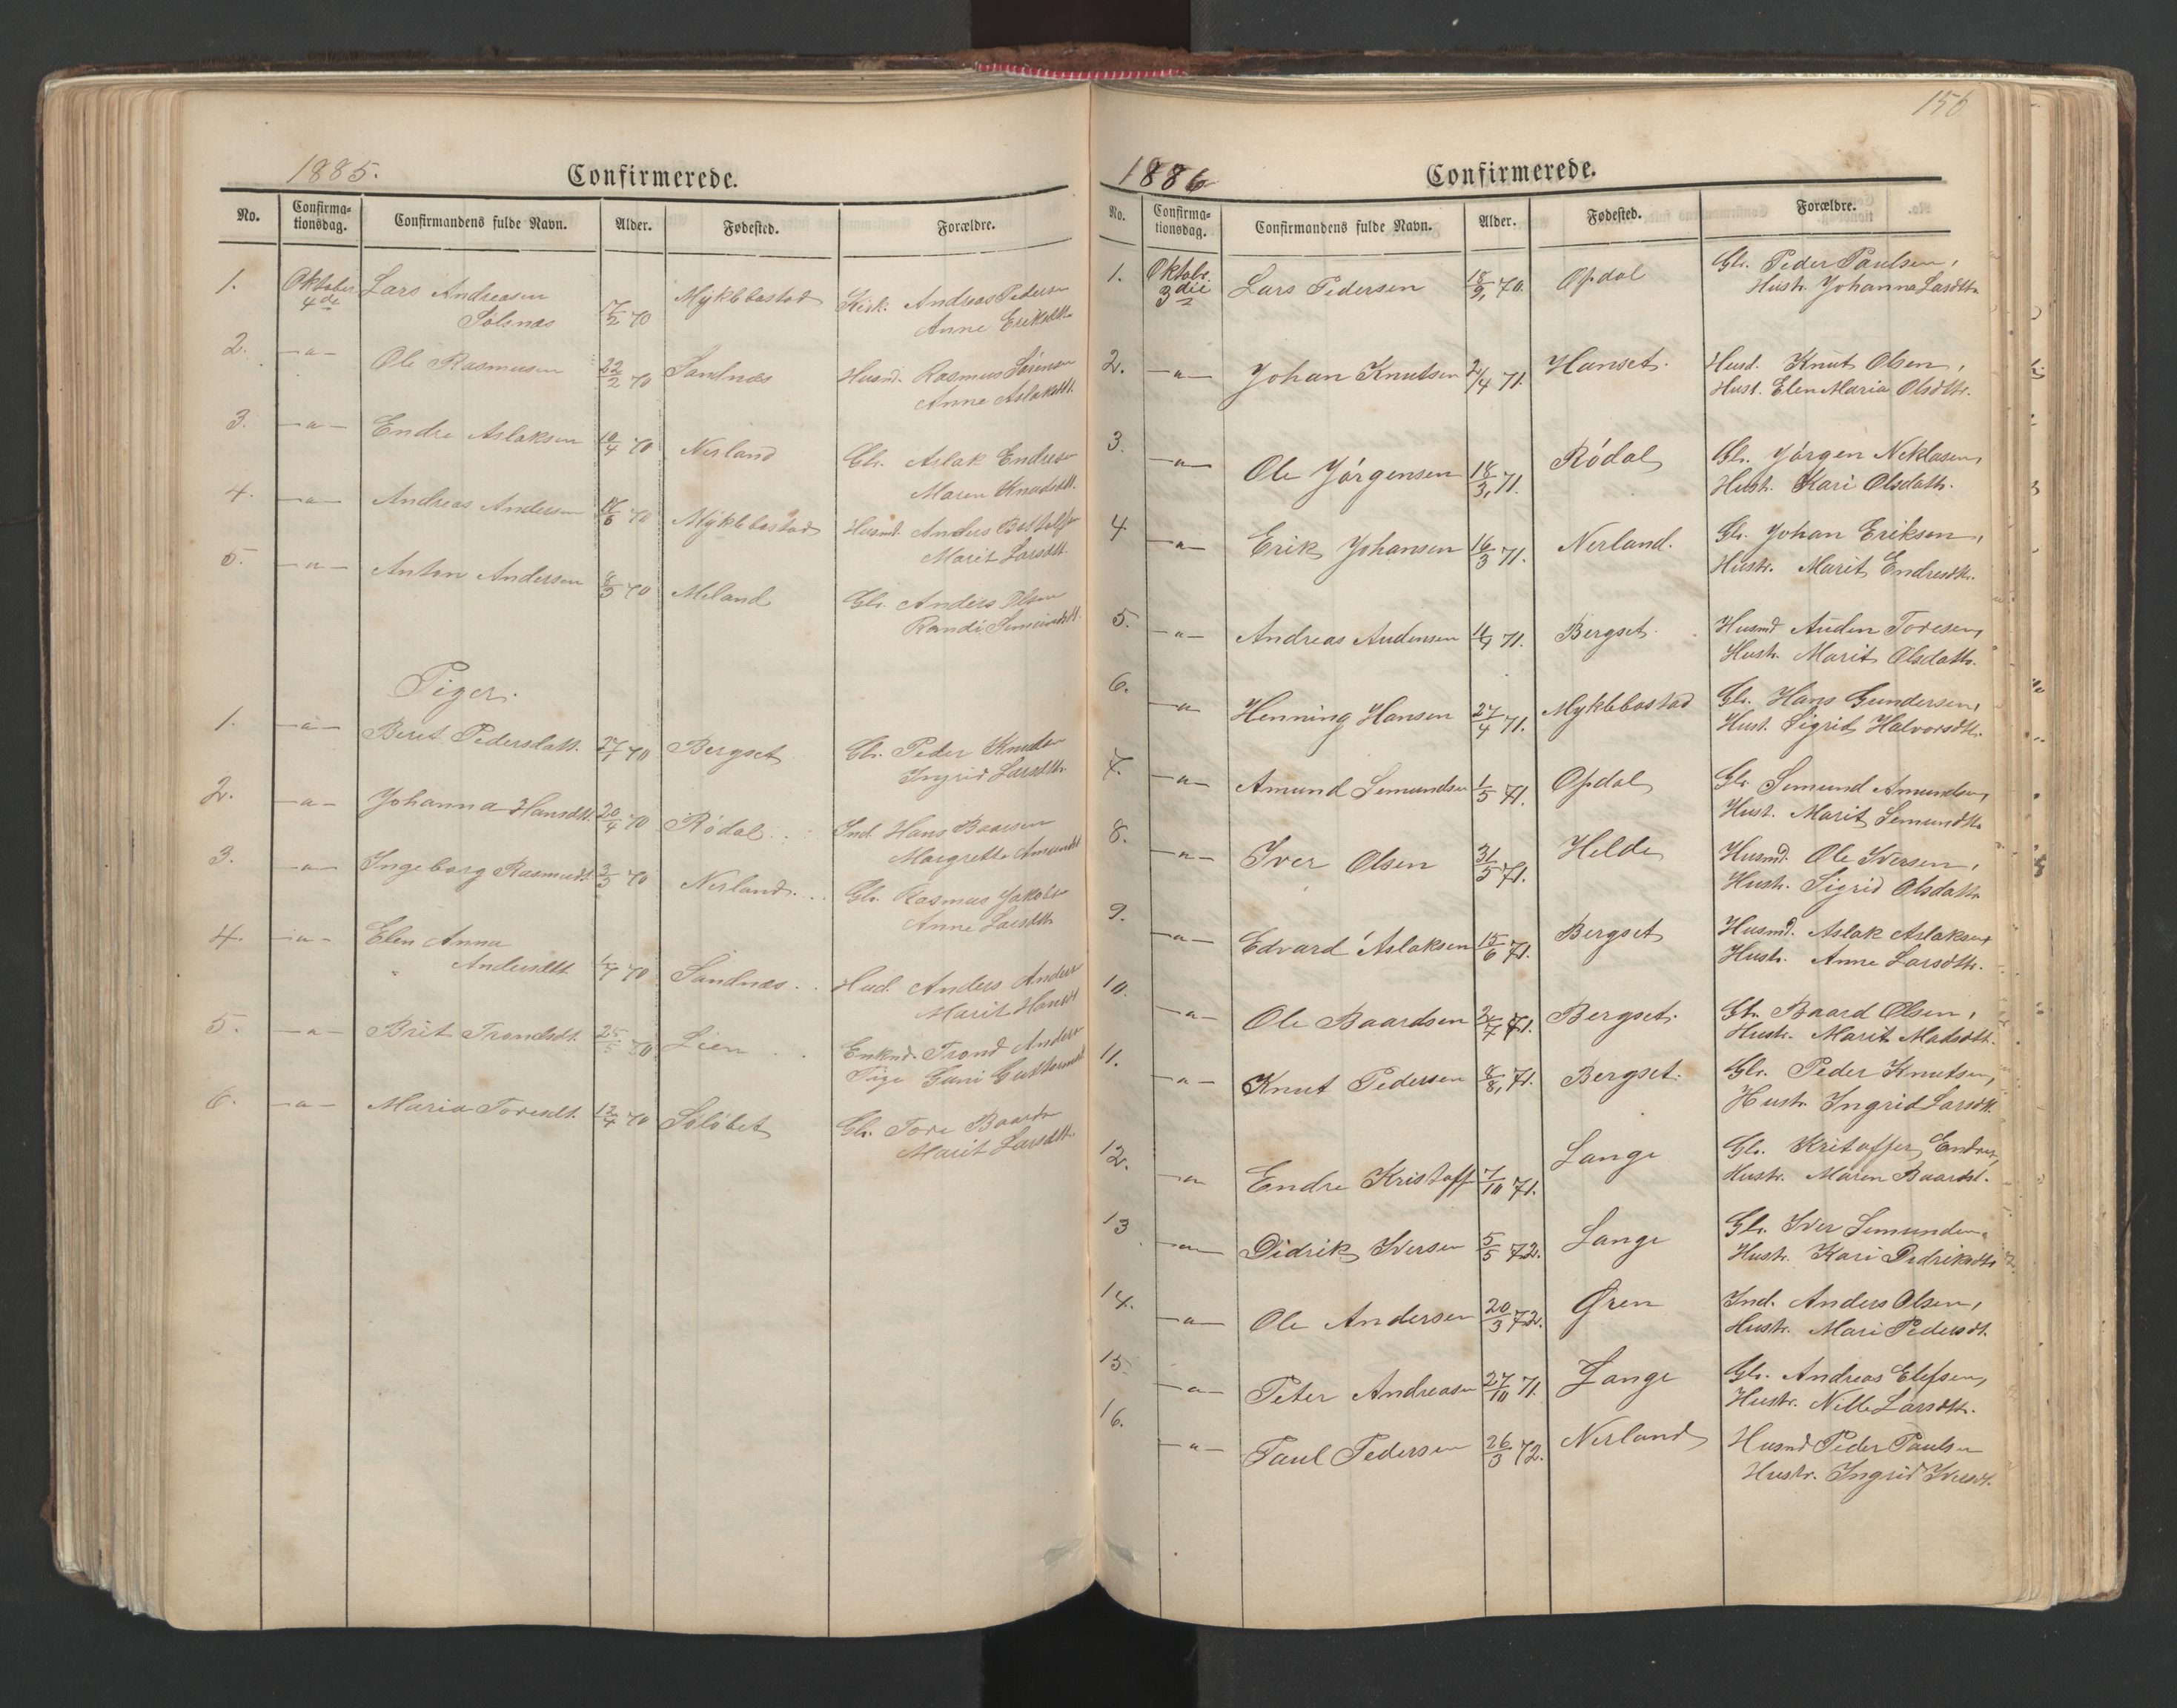 1885.
Confirmerede.
No. Confirma-tionsdag. Confirmandens fulde Navn. Alder. Fødested. Forældre.
1. Oktober 4de Lars Andreasen Solsnæs 7/2 70 Myklebostad Kirk: Andreas Pedersen
Anne Eriksdtr
2. -"- Ole Rasmusen 22/2 70 Sandnæs Husmd. Rasmus Sørensen
Anne Aslaksdtr.
3. -"- Endre Aslaksen 10/4 70 Nerland Gbr. Aslak Endresen
Maren Knudsdtr.
4. -"- Andreas Andersen 70 Myklebostad Husmd. Anders
Marit Larsdtr.
5. -"- Anton Andersen 8/5 70 Meland Gbr. Anders Olsen
Randi
Piger.
1. -"- Berit Pedersdatt. 27/7 70 Bergset Gbr. Peder Knudsen
Ingrid Larsdtr.
2. -"- Johanna Hansdtt. 20/4 70 Rödal Ind. Hans Baarsen
Margrethe Amundsdt
3. -"- Ingeborg Rasmusdt. 70 Nerland Gbr. Rasmus Jakobsen
Anne Larsdtr
4. -"- Elen Anna
Andersdtt 70 Sandnæs Hud. Anders Anders
Marit Hansdt
5. -"- Brit Trondsdt. 25/5 70 Lien Enkmd. Trond Anders
Pige Guni
6. -"- Maria Toresdt. 12/4 70 Gbr. Tore Baards
Marit Larsdtt.
156
1886
Confirmerede.
No. Confirma-tionsdag. Confirmandens fulde Navn. Alder. Fødested. Forældre.
1. Oktobr. 3die Lars Pedersen 18/9, 70. Opdal Gbr. Peder Paulsen,
Hustr. Johanna Larsdttr
2. -"- Johan Knutsen 2/4 71. Hanset. Husd. Knut Olsen,
Hust. Elen Maria Olsdttr.
3. -"- Ole Jörgensen 18/3, 71. Rödal Gbr. Jörgen Neklasen,
Hustr. Kari Olsdattr.
4 -"- Erik Johansen 16/3 71. Nerland. Gbr. Johan Eriksen,
Hustr. Marit Endresdtr.
5. -"- Andreas Audensen 71. Bergset. Husmd Auden Toresen,
Hustr. Marit Olsdattr.
6. -"- Henning Hansen 27/4 71. Myklebostad Gbr. Hans Gundersen,
Hust. Sigrid Halvorsdtr.
7. -"- Amund Semundsen 1/5 71. Opdal Gbr Semund Amundsen,
Hust. Marit Semundtr.
8. -"- Iver Olsen 31/5 71. Helde Husmd. Ole Iversen,
Hustr. Sigrid Olsdattr
9. -"- Edvard Aslaksen 15/6 71. Bergset Husmd. Aslak Aslaksen
Hustr. Anne Larsdttr.
10. -"- Ole Baardsen 71. Bergset. Gbr. Baard Olsen,
Hustr. Marit Madsdtt.
11. -"- Knut Pedersen 8/8, 71. Bergset. Gbr. Peder Knutsen,
Hustr. Ingrid Larsdtt.
12. -"- Endre Kristoff 7/10 71. Lange Gbr. Kritoffer Endres,
Hustr. Maren Baardst.
13 -"- Didrik Iversen 5/5 72. Lange Gbr. Iver Semundsen
Hustr. Kari Didriksdtr
14. -"- Ole Andersen 20/3 72. Ören Ind. Anders Olsen,
Hustr. Mari Pedersdt.
15 -"- Peter Andreasen 27/10 71. Lange Gbr. Andreas Elefsen,
Hustr. Nille Larsdtr.
16. -"- Paul Pedersen 26/3 72. Nerland Husmd Peder Paulsen
Hustr. Ingrid Iversdt.